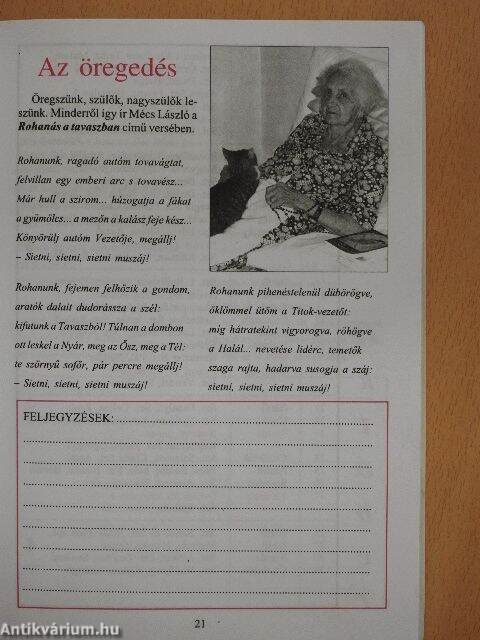 Az öregedés
Öregszünk, szülők, nagyszülők le-
szünk. Minderről így ír Mécs László a
Rohanás a tavaszban című versében.
Rohanunk, ragadó autóm tovavágtat,
felvillan egy emberi arc s tovavész...
Már hull a szirom... húzogatja a fákat
a gyümölcs... a mezőn a kalász feje kész...
Könyörülj autóm Vezetője, megállj!
– Sietni, sietni, sietni muszáj!
Rohanunk, fejemen felhőzik a gondom,
aratók dalait dudorássza a szél:
kifutunk a Tavaszból! Túlnan a dombon
ott leskel a Nyár, meg az Ősz, meg a Tél:
te szörnyű sofőr, pár percre megállj!
– Sietni, sietni, sietni muszáj!
Rohanunk pihenéstelenül dübörögve,
öklömmel ütöm a Titok-vezetőt:
míg hátratekint vigyorogva, röhögve
a Halál... nevetése lidérc, temetők
szaga rajta, hadarva susogja a száj:
sietni, sietni, sietni muszáj!
FELJEGYZÉSEK:
21
Antikvárium.hu